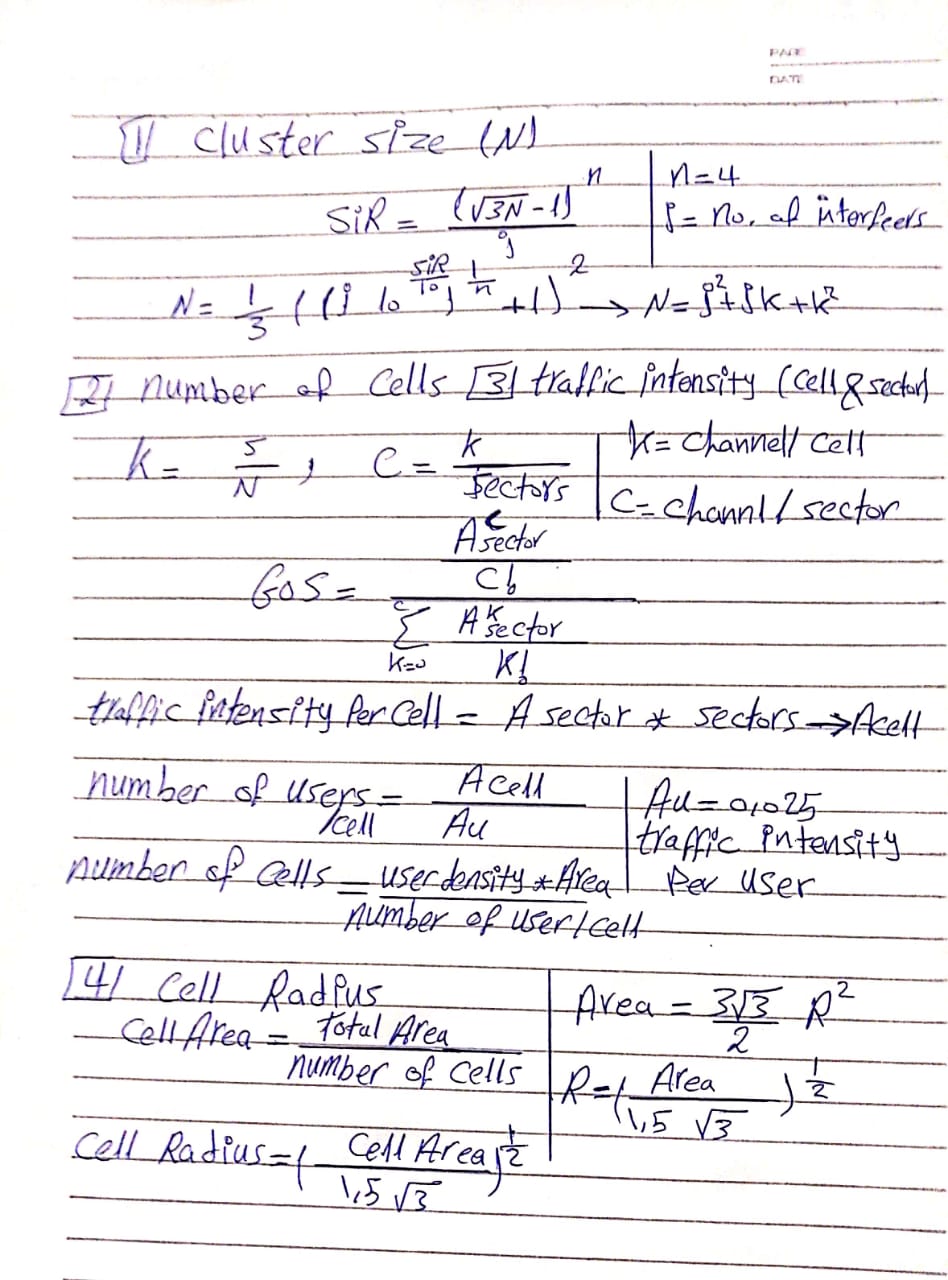 PAGE
DATE
[1] cluster size (N)
SiR = (√3N - 1)^n / j
n=4
j = no. of interfeers
N = 1/3 ((j 10^(SiR/10))^(1/n) + 1)^2 → N = j²+jk+k²
[2] number of Cells [3] traffic intensity (cell & sector)
k = S/N , C = k/sectors
k = channel/ cell
C = channl / sector
GOS = (A sector^C / C!) / (Σ k=0 ^c A sector^K / K!)
traffic intensity Per Cell = A sector * sectors → Acell
number of users/cell = Acell / Au
Au = 0,025
traffic intensity
Per user
number of cells = user density * Area / number of user/cell
[4] Cell Radius
Cell Area = Total Area / number of cells
Area = 3√3/2 R²
R = (Area / 1,5 √3)^(1/2)
Cell Radius = (Cell Area / 1,5 √3)^(1/2)